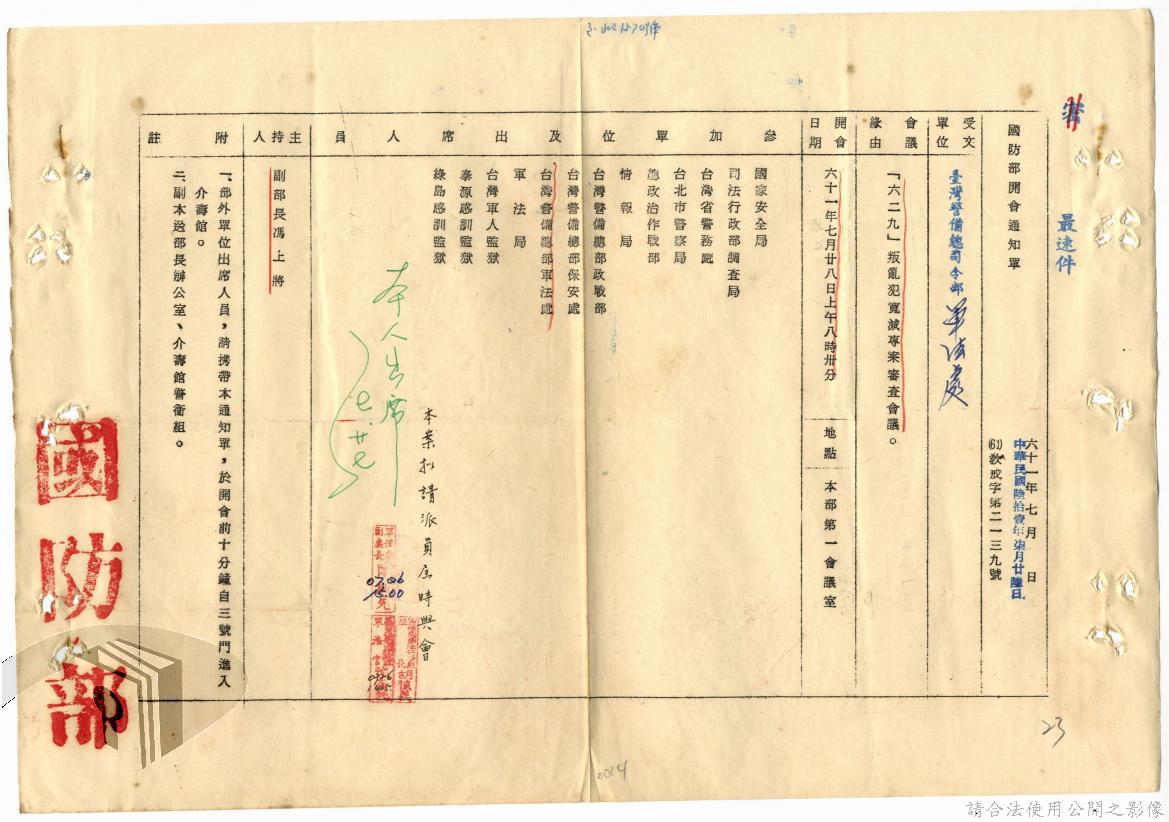 最速件
國防部開會通知單
六十一年七月　日
中華民國陸拾壹年柒月廿陸日
(61)教戒字第二一三九號
受文單位
臺灣警備總司令部
軍法處
會議緣由
「六二九」叛亂犯寬減專案審查會議。
開會日期
六十一年七月廿八日上午八時卅分
地點
本部第一會議室
參加單位及出席人員
國家安全局
司法行政部調查局
台灣省警務處
台北市警察局
總政治作戰部
情報局
台灣警備總部政戰部
台灣警備總部保安處
台灣警備總部軍法處
軍法局
台灣軍人監獄
泰源感訓監獄
綠島感訓監獄
本案擬請派員屆時與會
本人出席
主持人
副部長馮上將
附註
一、部外單位出席人員，請攜帶本通知單，於開會前十分鐘自三號門進入
介壽館。
二、副本送部長辦公室、介壽館警衛組。
國防部
23
0024
請合法使用公開之影像